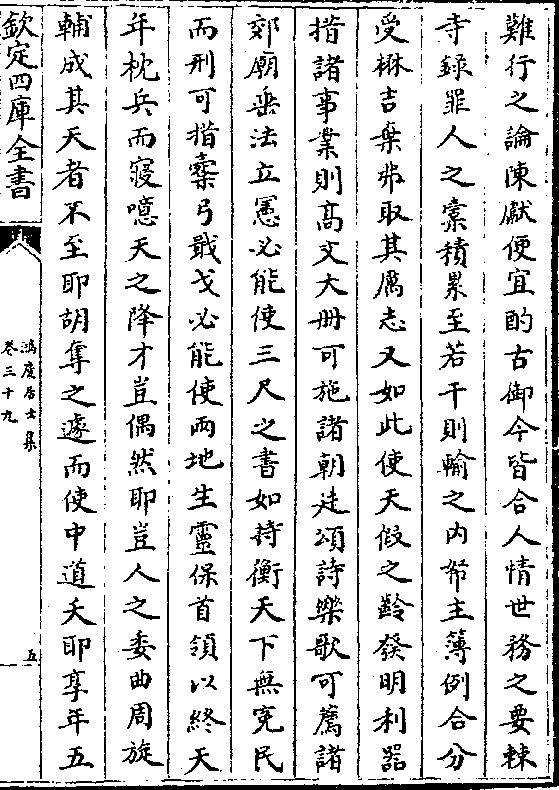 難行之論陳獻便宜酌古御今皆合人情世務之要棘
寺録罪人之橐積累至若干則輸之内帑主簿例合分
受綝吉棄弗取其厲志又如此使天假之齡發明利器
措諸事業則髙文大册可施諸朝廷頌詩樂歌可薦諸
郊廟垂法立憲必能使三尺之書如持衡天下無寃民
而刑可措櫜弓戢戈必能使兩地生靈保首領以終天
年枕兵而寢噫天之降才豈偶然耶豈人之委曲周旋
輔成其天者不至耶胡奪之遽而使中道夭耶享年五
欽定四庫全書
鴻慶居士集
卷三十九
五